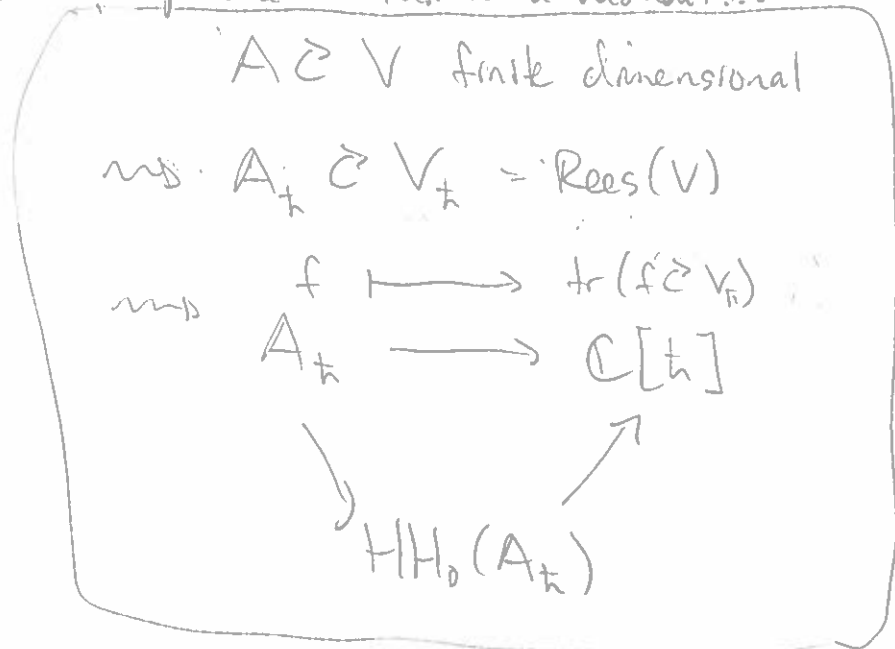 A ↻ V finite dimensional
⇝ A_ħ ↻ V_ħ = Rees(V)
f ⟼ tr(f ↻ V_ħ)
⇝ A_ħ ⟶ ℂ[ħ]
↘ ↗
HH₀(A_ħ)